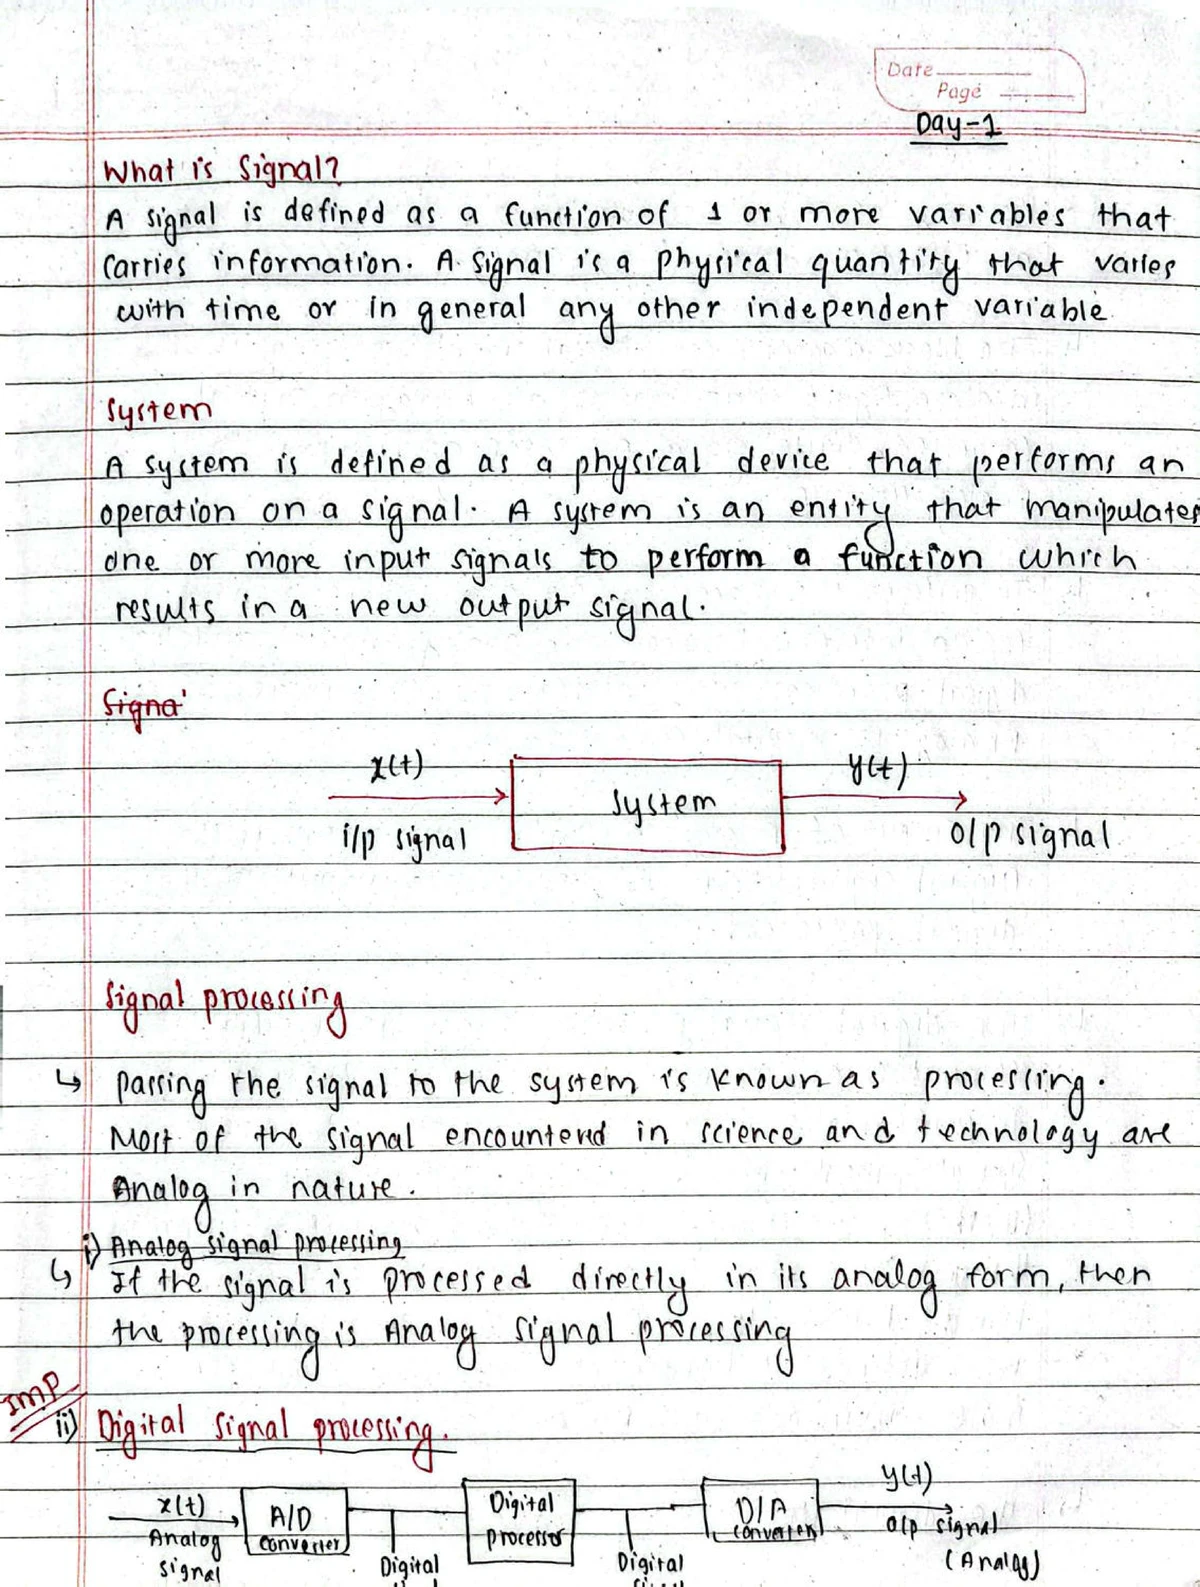 Date
Page
Day-1
What is Signal?
A signal is defined as a function of 1 or more variables that
carries information. A signal is a physical quantity that varies
with time or in general any other independent variable.
System
A system is defined as a physical device that performs an
operation on a signal. A system is an entity that manipulates
one or more input signals to perform a function which
results in a new output signal.
Signal
x(t) y(t)
System
i/p signal o/p signal
Signal processing
↳ passing the signal to the system is known as processing.
Most of the signal encounterd in science and technology are
Analog in nature.
i) Analog signal processing
↳ If the signal is processed directly in its analog form, then
the processing is Analog signal processing
IMP
ii) Digital signal processing.
x(t) A/D Digital D/A y(t)
Analog converter processor converter o/p signal
signal Digital Digital (Analog)